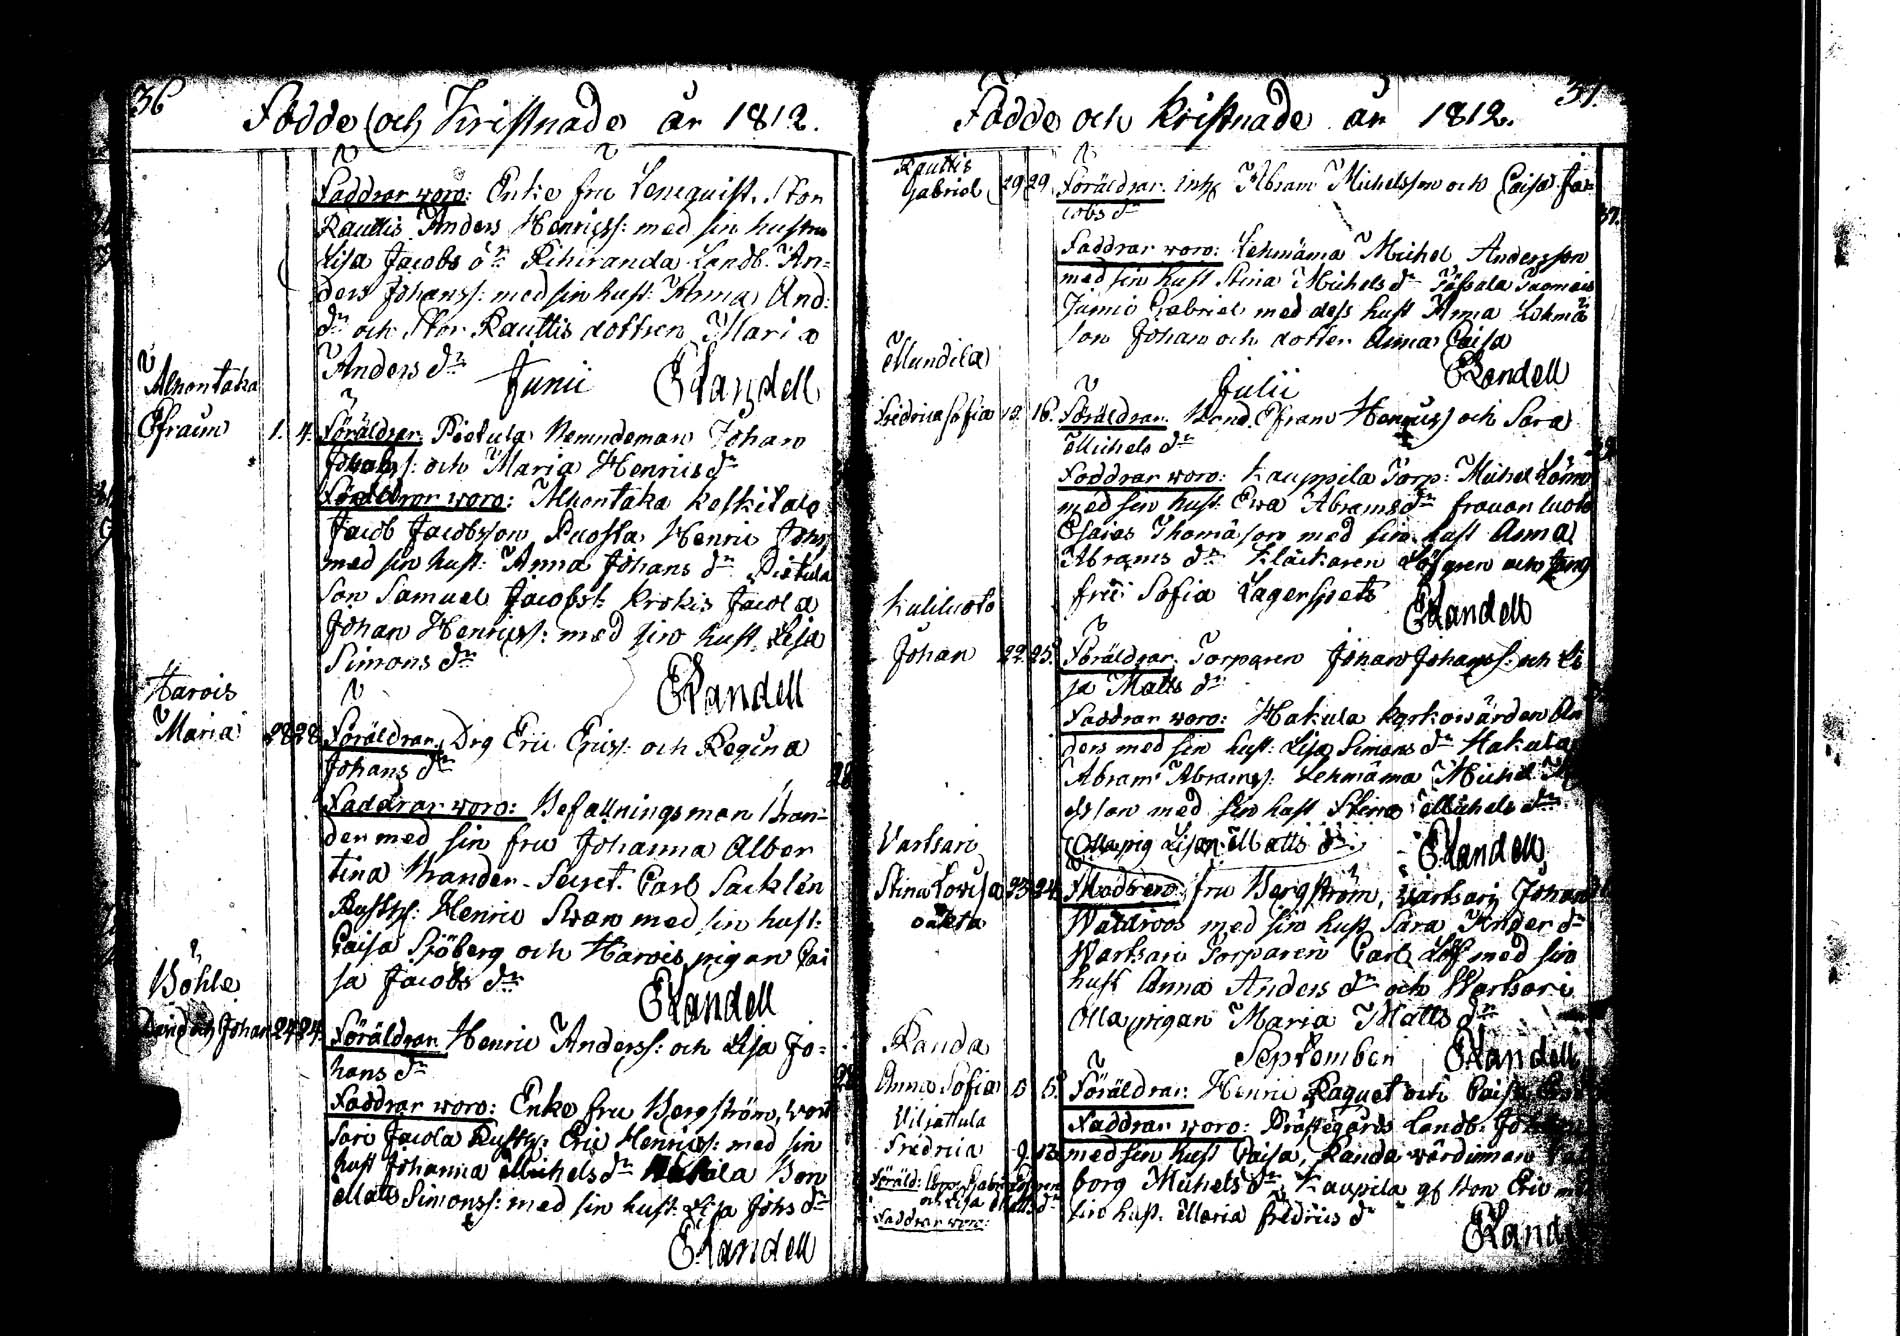 36
Födde och Kristnade år 1812.
Faddrar woro: Enke fru Lenequist, Stor
Rauttis Anders Henricss: med sin hustru
Lisa Jacobs dr Rihiranda Landb. An-
ders Johanss: med sin hust: Anna And:
dr och Stor Rauttis dottren Maria
Anders dr
Junii
E Randell
Alhontaka
Efraim 1. 4. Föräldrar. Pietula Nemndeman Johan
Jacobs: och Maria Henrics dr
Faddrar woro: Alhontaka Keskitalo
Jacob Jacobsson, Puosta Henric Johs:
med sin hust: Anna Johans dr Pietula
son Samuel Jacobss: Krokis Jacola
Johan Henricss: med sin hust. Lisa
Simons dr
E Randell
Harois
Maria 28 28 Föräldrar. Drg Eric Ericss: och Regina
Johans dr
Faddrar woro: Befallningsman Bran-
der med sin fru Johanna Alber
tina Brander. Secret. Carl Sacklén
Rusth: Henric Swan med sin hust:
Caisa Sjöberg och Harois pigan Cai
sa Jacobs dr
E Randell
Böhle
David och Johan 24 24. Föräldrar Henric Anderss: och Lisa Jo-
hans dr
Faddrar woro: Enke fru Bergström, Wart
sari Jacola Rusth: Eric Henricss: med sin
hust Johanna Michels dr Bon
Matts Simonss: med sin hust: Lisa Johs dr
E Randell
37.
Födde och Kristnade år 1812.
Rauttis
Gabriel 29 29 Föräldrar. Inh: Abram Michelsson och Caisa Ja-
cobs dr
Faddrar woro: Lehmäma Michel Andersson
med sin hust Stina Michels dr
Junio Gabriel med dess hust Anna
son Johan och dotter Anna Caisa
E Randell
Mundila
Julii
Fredrica Sofia 13. 16. Föräldrar. Bond. Efraim Henricss och Sara
Michels dr
Faddrar woro: Kauppila Torp: Michel
med sin hust: Ewa Abrams dr
Esaias Thomasson med sin hust Anna
Abrams dr Kläckaren Löfgren och Jung
fru Sofia Lagerspets
E Randell
Kuliluoto
Johan 22. 25. Föräldrar. Torparen Johan Johanss: och Li
sa Matts dr
Faddrar woro: Hakula Kyrkowärden An
ders med sin hust: Lisa Simons dr Hakula
Abram Abramss: Lehmäma Michel
son med sin hust Stina Michels dr
Ollapig Lisa Matts dr
E Randell
Vartsari
Stina Lovisa 23. 24. Modren. fru Bergström, Vartsari Johan
oäkta Waldroos med sin hust Sara Anders dr
Wartsari Torparen Carl Löf med sin
hust Anna Anders dr och Wartsari
Olla pigan Maria Matts dr
September E Randell
Randa
Anna Sofia 5 5. Föräldrar: Henric Raquet och Caisa
Viljattula Faddrar woro: Prästegårds Landb: Johan
Fredrica 9. 13. med sin hust Caisa, Randa wärdinnan
borg Michels dr Kaupila gf Bon Eric med
sin hust. Maria Fredrics dr
Föräld:
och Lisa Matts dr
Faddrar woro:
E Randell